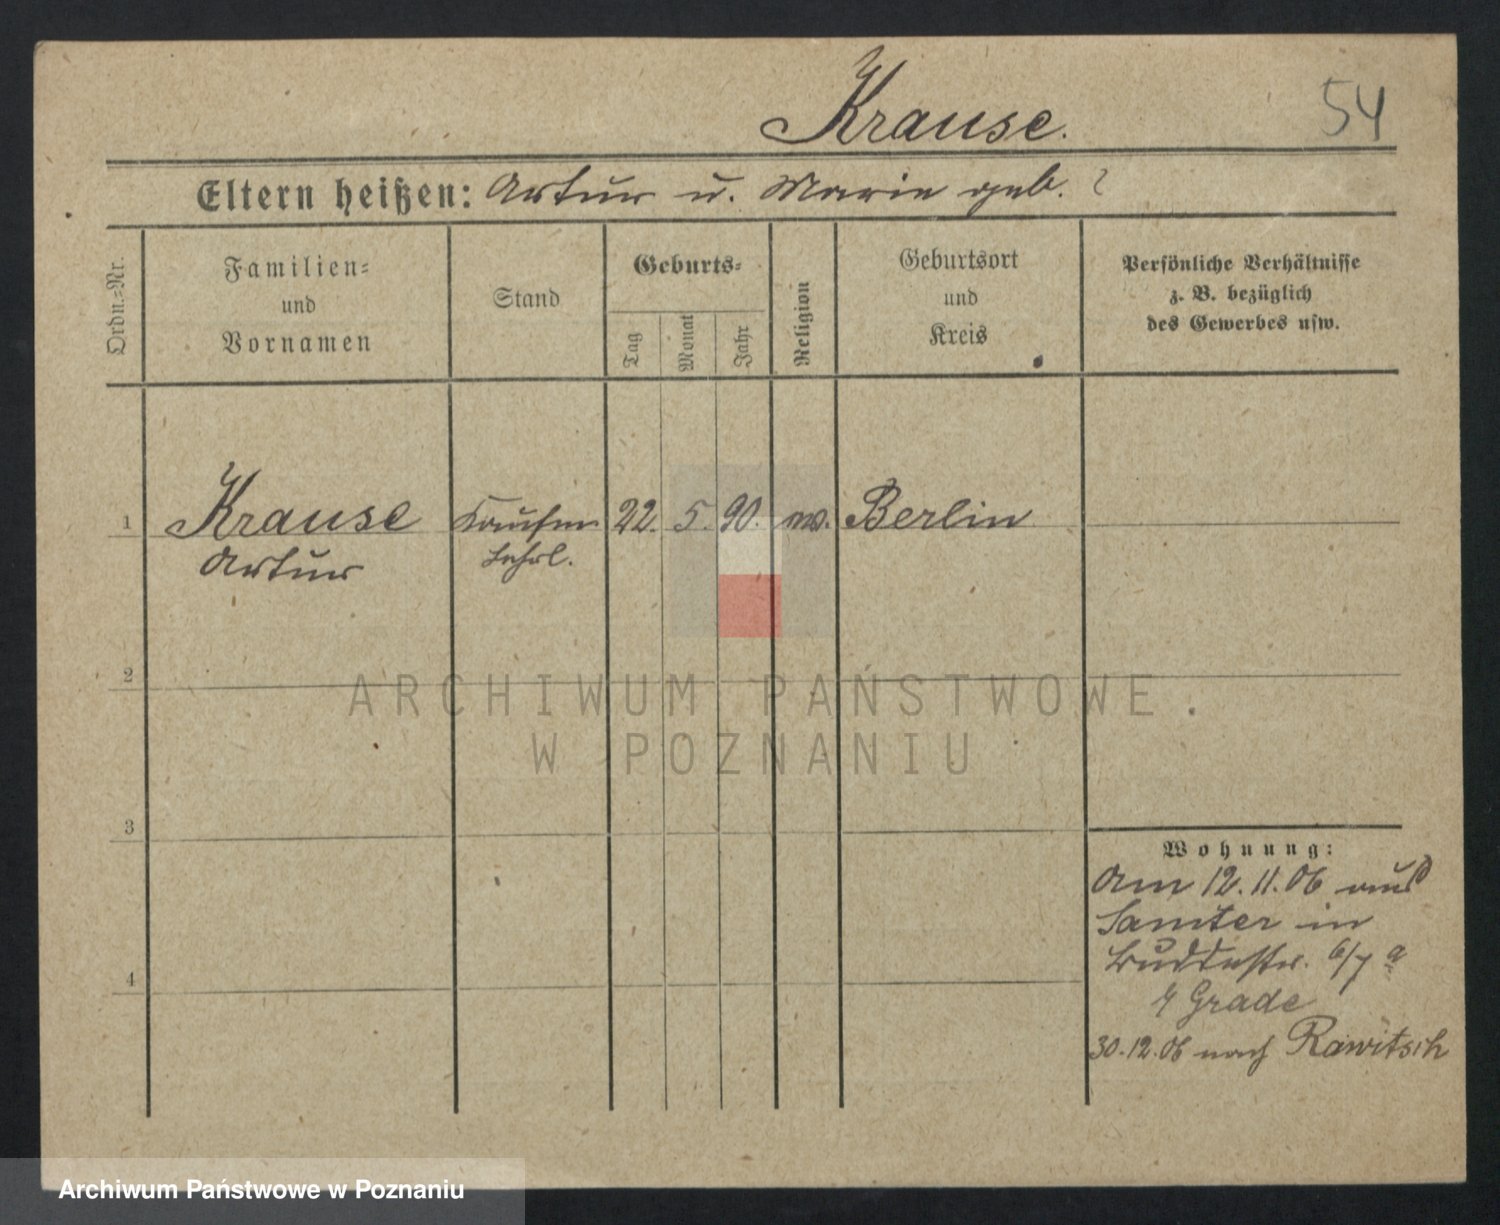 Krause.
54
Eltern heißen: Artur u. Marie geb. ?
Ordn.=Nr.
Familien=
und
Vornamen
Stand
Geburts=
Tag
Monat
Jahr
Religion
Geburtsort
und
Kreis
Persönliche Verhältnisse
z. B. bezüglich
des Gewerbes usw.
1 Krause Kaufm 22. 5. 90. ev. Berlin
Artur Lehrl.
2
3
4
Wohnung:
Am 12.11.06 aus
Samter in
Buddestr. 6/7 a
b/ Grade
30.12.06 nach Rawitsch
ARCHIWUM PAŃSTWOWE
W POZNANIU
Archiwum Państwowe w Poznaniu